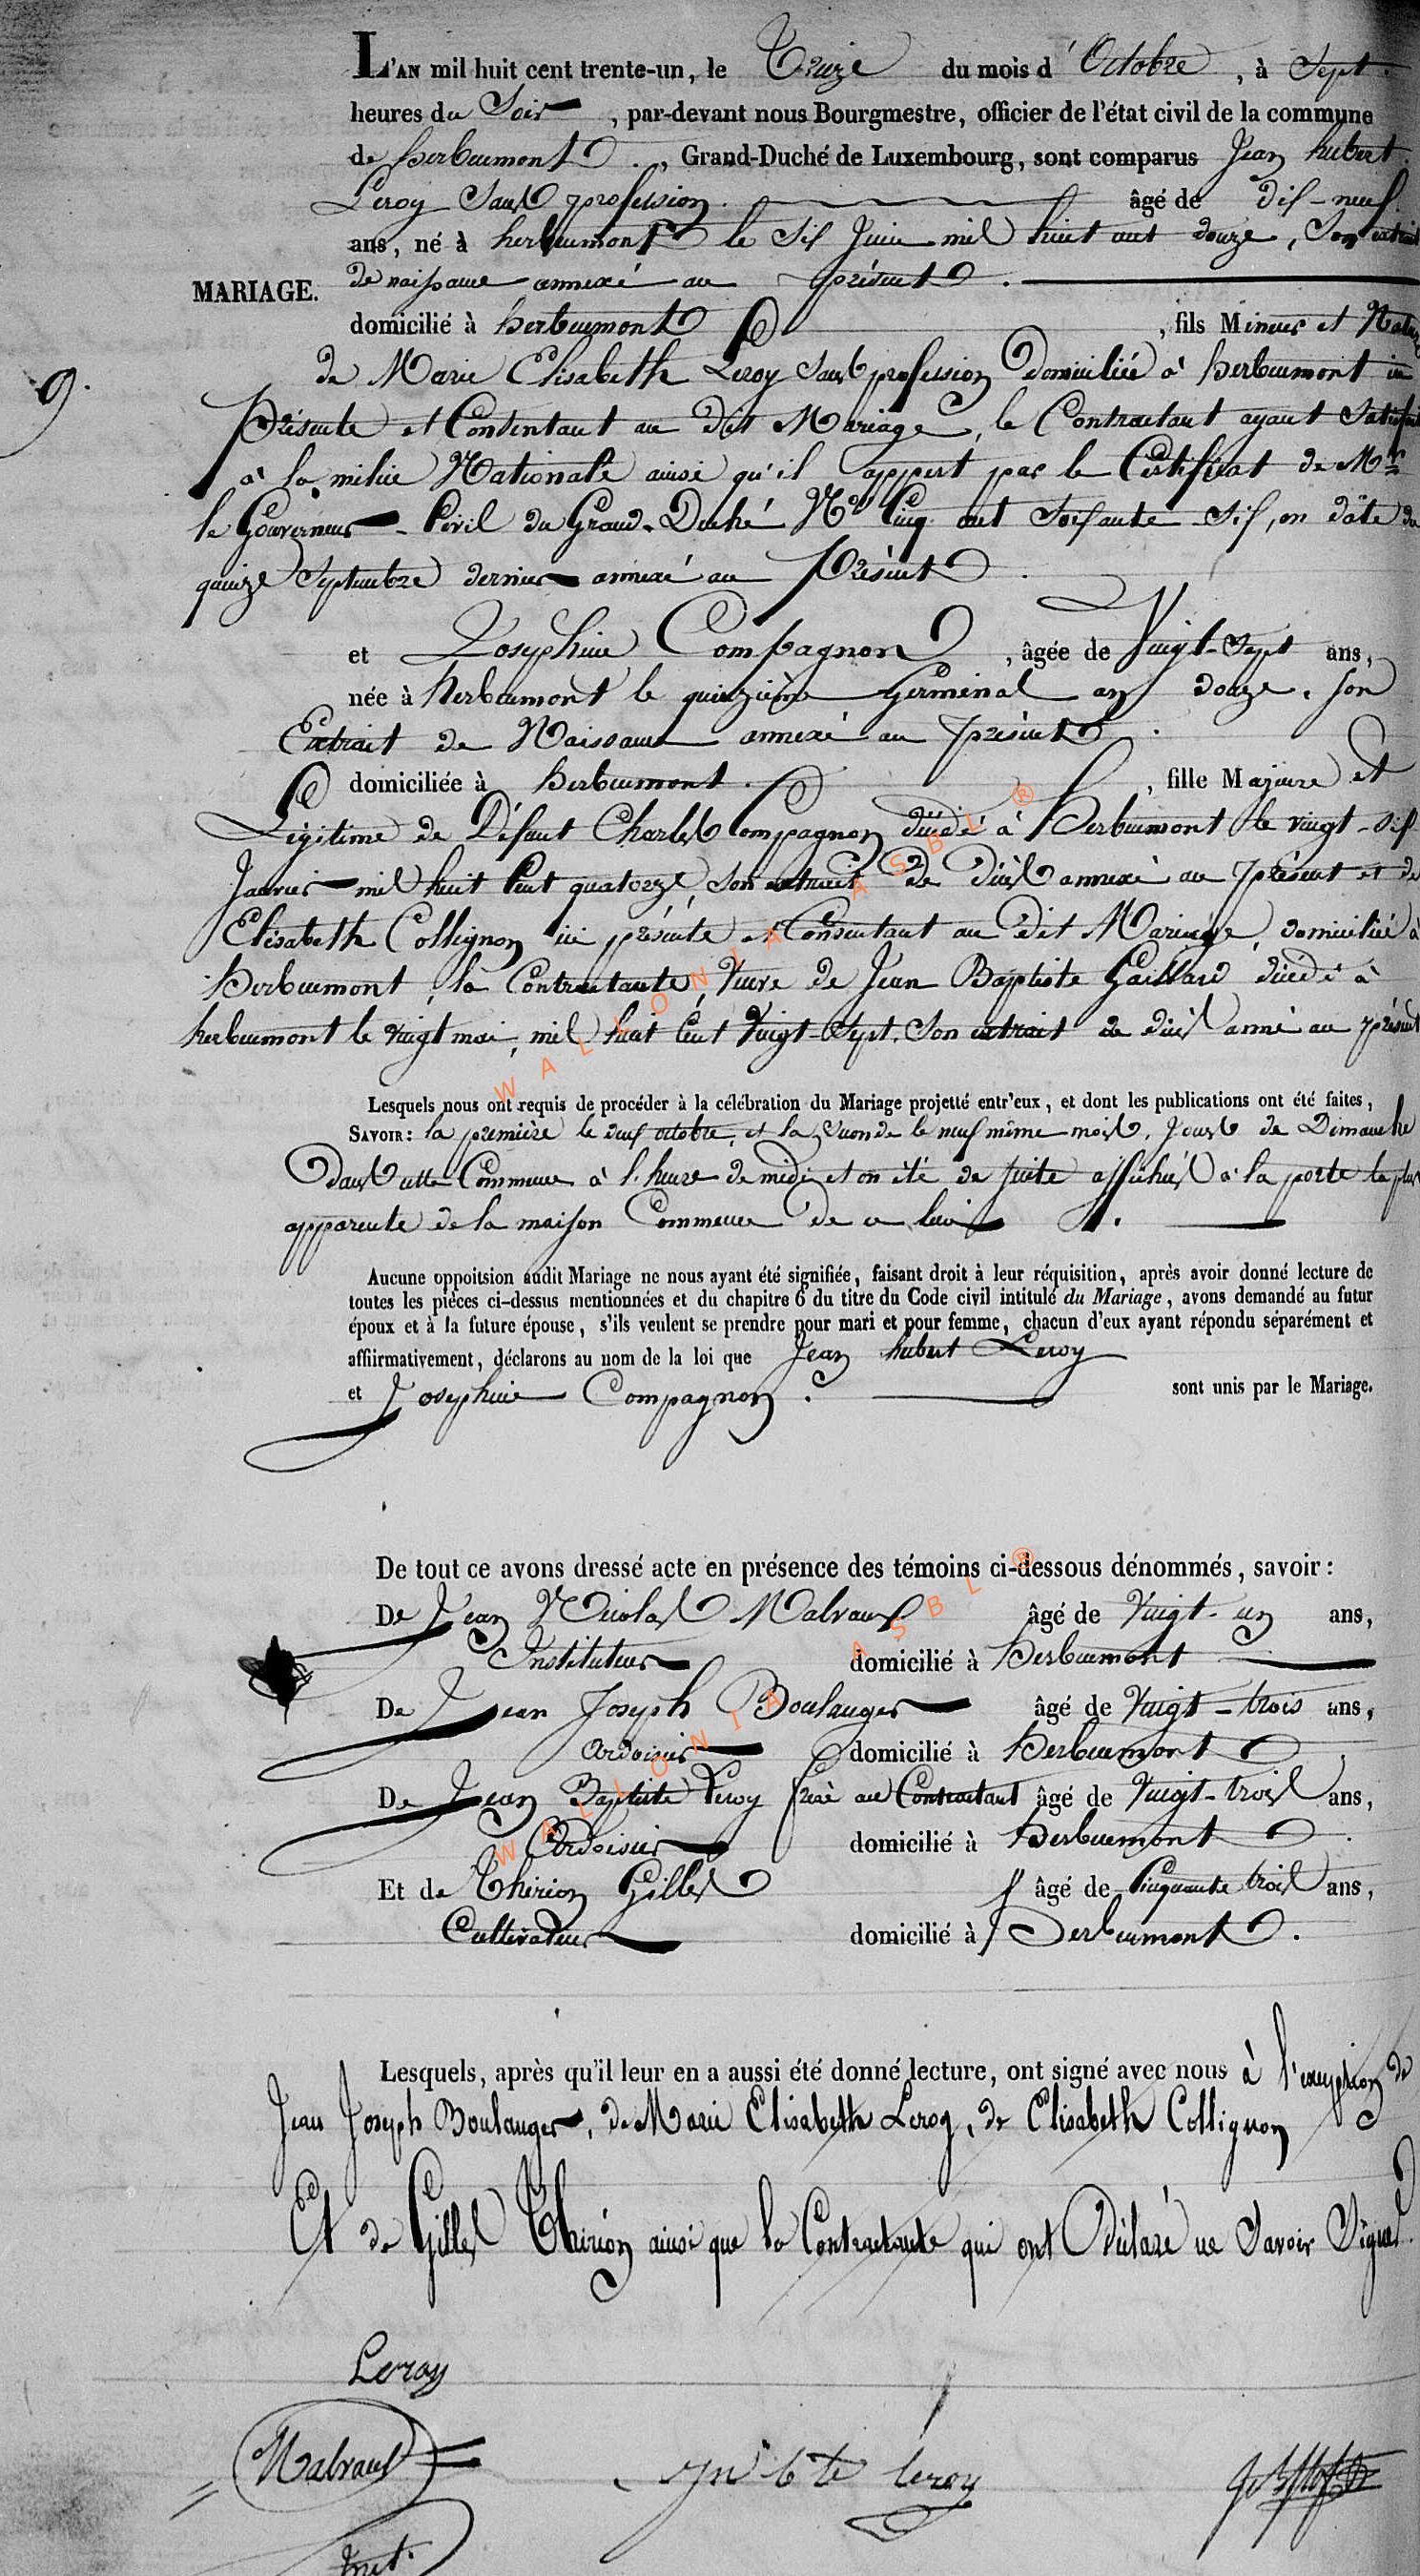 L'AN mil huit cent trente-un, le Treize du mois d'Octobre, à Sept
heures du Soir, par-devant nous Bourgmestre, officier de l'état civil de la commune
de herbeumont, Grand-Duché de Luxembourg, sont comparus Jean hubert
Leroy Sans profession âgé de dix-neuf
ans, né à herbeumont le Six Juin mil huit cent douze, Son extrait
de naissance annexé au présent.
MARIAGE.
domicilié à herbeumont, fils Mineur et Naturel
9.
de Marie Elisabeth Leroy Sans profession Domiciliée à herbeumont ici
Présente et Consentant au dit Mariage, le Contractant ayant Satisfait
à la milice Nationale ainsi qu'il appert par le Certificat de Mr
le Gouverneur Civil du Grand-Duché No Cinq cent Soixante-Six, en date du
quinze Septembre dernier annexé au Présent.
et Josephine Compagnon, âgée de Vingt-Sept ans,
née à herbeumont le quinzième Germinal an douze, son
Extrait de Naissance annexé au présent.
domiciliée à herbeumont, fille Majeure et
Légitime de Défunt Charles Compagnon décédé à Herbeumont le vingt-six
Janvier mil huit Cent quatorze, son extrait de décès annexé au présent et de
Elisabeth Collignon ici présente et Consentant au dit Mariage, domiciliée à
Herbeumont, la Contractante, Veuve de Jean Baptiste Gaillard décédé à
herbeumont le vingt mai, mil huit Cent Vingt-Sept, Son extrait de décès anné au présent
Lesquels nous ont requis de procéder à la célébration du Mariage projetté entr'eux, et dont les publications ont été faites,
SAVOIR: la première le deux octobre, et la Seconde le neuf même mois, Jours de Dimanche
Dans cette Commune à l'heure de midi et on été de suite affichés à la porte la plus
apparente de la maison Commune de ce lieu.
Aucune oppoitsion audit Mariage ne nous ayant été signifiée, faisant droit à leur réquisition, après avoir donné lecture de
toutes les pièces ci-dessus mentionnées et du chapitre 6 du titre du Code civil intitulé du Mariage, avons demandé au futur
époux et à la future épouse, s'ils veulent se prendre pour mari et pour femme, chacun d'eux ayant répondu séparément et
affiirmativement, déclarons au nom de la loi que Jean hubert Leroy
et Josephine Compagnon. sont unis par le Mariage.
De tout ce avons dressé acte en présence des témoins ci-dessous dénommés, savoir:
De Jean Nicolas Malvaux âgé de Vingt-un ans,
Instituteur domicilié à Herbeumont
De Jean Joseph Boulanger âgé de Vingt-trois ans,
Ardoisier domicilié à Herbeumont
De Jean Baptiste Leroy frère au Contractant âgé de Vingt-trois ans,
Ardoisier domicilié à Herbeumont.
Et de Thirion Gilles âgé de Cinquante trois ans,
Cultivateur domicilié à Herbeumont.
Lesquels, après qu'il leur en a aussi été donné lecture, ont signé avec nous à l'exception de
Jean Joseph Boulanger, de Marie Elisabeth Leroy, de Elisabeth Collignon
Et de Gilles Thirion ainsi que la Contractante qui ont Déclaré ne Savoir Signer.
Leroy
Malvaux
Jn bte leroy
Inst.
WALLONIA ASBL ®
WALLONIA ASBL ®